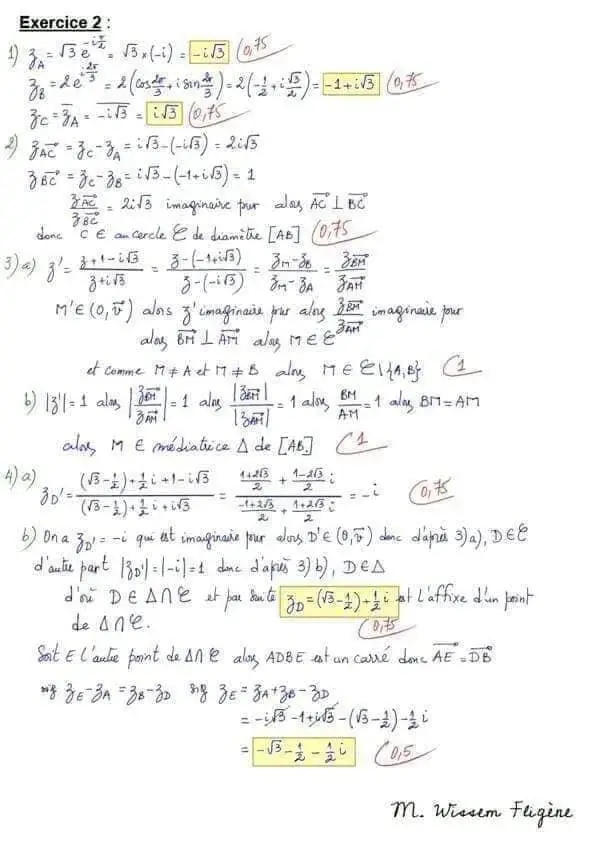 Exercice 2 :
1) z_A = √3 e^{-iπ/2} = √3 × (-i) = -i√3 (0,75
z_B = 2e^{i2π/3} = 2(cos 2π/3 + i sin 2π/3) = 2(-1/2 + i√3/2) = -1+i√3 (0,75
z_C = \overline{z_A} = \overline{-i√3} = i√3 (0,75
2) z_{\vec{AC}} = z_C - z_A = i√3 - (-i√3) = 2i√3
z_{\vec{BC}} = z_C - z_B = i√3 - (-1+i√3) = 1
z_{\vec{AC}}/z_{\vec{BC}} = 2i√3 imaginaire pur alors \vec{AC} ⊥ \vec{BC}
donc C ∈ au cercle 𝒞 de diamètre [AB] (0,75
3) a) z' = (z+1-i√3)/(z+i√3) = (z-(-1+i√3))/(z-(-i√3)) = (z_M-z_B)/(z_M-z_A) = z_{\vec{BM}}/z_{\vec{AM}}
M' ∈ (O, \vec{v}) alors z' imaginaire pur alors z_{\vec{BM}}/z_{\vec{AM}} imaginaire pur
alors \vec{BM} ⊥ \vec{AM} alors M ∈ 𝒞
et comme M ≠ A et M ≠ B alors M ∈ 𝒞\{A,B} (1
b) |z'| = 1 alors |z_{\vec{BM}}/z_{\vec{AM}}| = 1 alors |z_{\vec{BM}}|/|z_{\vec{AM}}| = 1 alors BM/AM = 1 alors BM = AM
alors M ∈ médiatrice Δ de [AB] (1
4) a) z_{D'} = ((√3-1/2)+1/2 i+1-i√3)/((√3-1/2)+1/2 i+i√3) = ((1+2√3)/2 + (1-2√3)/2 i)/((-1+2√3)/2 + (1+2√3)/2 i) = -i (0,75
b) On a z_{D'} = -i qui est imaginaire pur alors D' ∈ (O, \vec{v}) donc d'après 3) a), D ∈ 𝒞
d'autre part |z_{D'}| = |-i| = 1 donc d'après 3) b), D ∈ Δ
d'où D ∈ Δ ∩ 𝒞 et par suite z_D = (√3-1/2)+1/2 i est l'affixe d'un point
de Δ ∩ 𝒞. (0,75
Soit E l'autre point de Δ ∩ 𝒞 alors ADBE est un carré donc \vec{AE} = \vec{DB}
sig z_E - z_A = z_B - z_D sig z_E = z_A + z_B - z_D
= -i√3 - 1 + i√3 - (√3-1/2) - 1/2 i
= -√3 - 1/2 - 1/2 i (0,5
M. Wissem Fligène